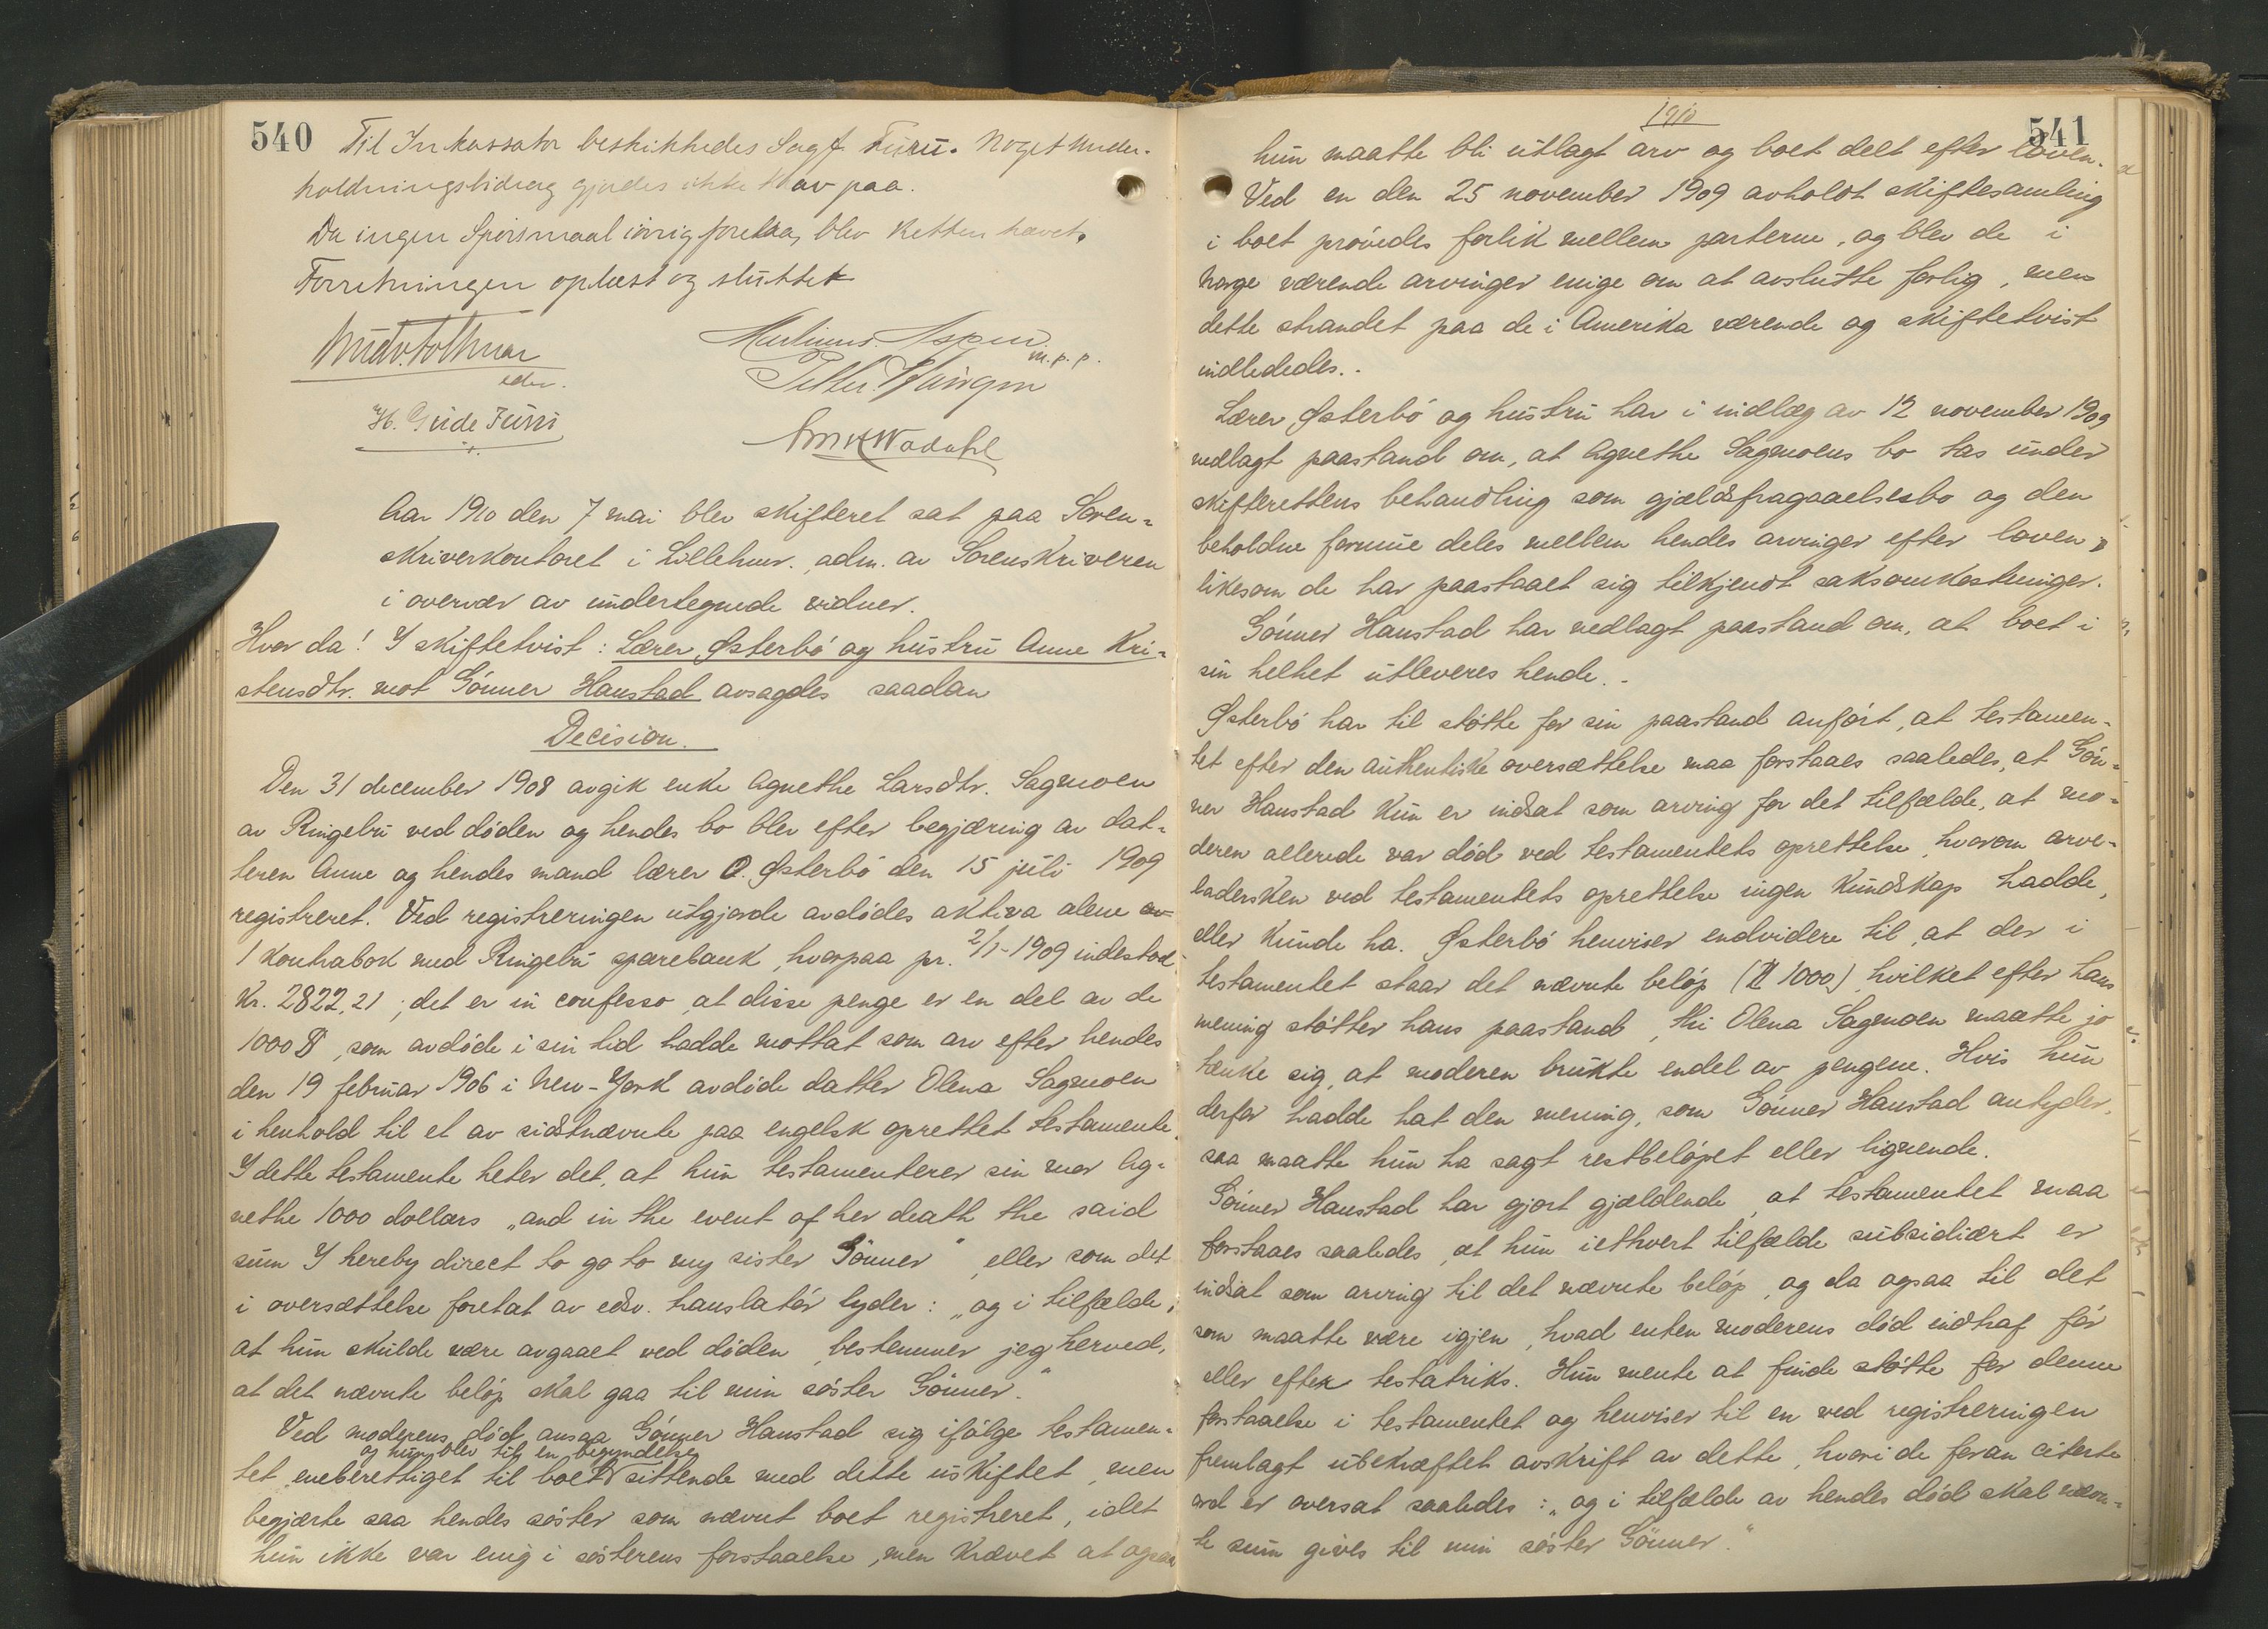 540
Til Inkassator beskikkedes Sagf. Furu. Noget under-
holdningsbidrag gjordes ikke krav paa.
Da ingen Spørsmaal iøvrig forelaa, blev Retten hævet.
Forretningen oplæst og sluttet
m.p.p.
edsv.
H. Gude Furu
Aar 1910 den 7 mai blev skifteret sat paa Soren-
skriverkontoret i Lillehmr. adm. av Sorenskriveren
i overvær av undertegnede vidner.
Hvor da! I skiftetvist: Lærer Østerbö og hustru Anne Kri-
stensdtr. mot Gönner Hanstad avsagdes saadan
Decision.
Den 31 december 1908 avgik enke Agnethe Larsdtr. Sagmoen
av Ringebu ved döden og hendes bo blev efter begjæring av dat-
teren Anne og hendes mand lærer O. Østerbö den 15 juli 1909
registreret. Ved registreringen utgjorde avdödes aktiva alene av
1 kontrabok med Ringebu sparebank, hvorpaa pr. 2/1-1909 indestod
Kr. 2822,21; det er in confesso, at disse penge er en del av de
1000 $, som avdöde i sin tid hadde mottat som arv efter hendes
den 19 februar 1906 i New-York avdöde datter Olena Sagmoen
i henhold til et av sidstnævnte paa engelsk oprettet testamente.
I dette testamente heter det, at hun testamenterer sin mor Ag-
nethe 1000 dollars „and in the event of her death the said
sum I hereby direct to go to my sister Gönner", eller som det
i oversættelse foretat av edsv. translatör lyder: „og i tilfælde,
at hun skulde være avgaaet ved döden, bestemmer jeg herved,
at det nævnte belöp skal gaa til min söster Gönner."
Ved moderens död ansaa Gönner Hanstad sig ifölge testamen-
og hun blev til en begyndelse
tet eneberettiget til boet sittende med dette uskiftet, men
begjærte saa hendes söster som nævnt boet registreret, idet
hun ikke var enig i sösterens forstaaelse, men krævet at ogsaa
1910
541
hun maatte bli utlagt arv og boet delt efter loven.
Ved en den 25 november 1909 avholdt skiftesamling
i boet prövedes forlik mellem parterne, og blev de i
Norge værende arvinger enige om at avslutte forlig, men
dette strandet paa de i Amerika værende og skiftetvist
indlededes.
Lærer Østerbö og hustru har i indlæg av 12 november 1909
nedlagt paastand om, at Agnethe Sagmoens bo tas under
skifterettens behandling som gjældsfragaaelsesbo og den
beholdne formue deles mellem hendes arvinger efter loven,
likesom de har paastaaet sig tilkjendt saksomkostninger.
Gönner Hanstad har nedlagt paastand om, at boet i
sin helhet utleveres hende.
Østerbö har til stötte for sin paastand anfört, at testamen-
tet efter den authentiske oversættelse maa forstaaes saaledes, at Gön-
ner Hanstad kun er indsat som arving for det tilfælde, at mo-
deren allerede var död ved testamentets oprettelse, hvorom arve-
ladersken ved testamentets oprettelse ingen kundskap hadde,
eller kunde ha. Østerbö henviser endvidere til, at der i
testamentet staar det nævnte belöp ($ 1000), hvilket efter hans
mening stötter hans paastand, thi Olena Sagmoen maatte jo
tænke sig, at moderen brukte endel av pengene. Hvis hun
derfor hadde hat den mening, som Gönner Hanstad antyder,
saa maatte hun ha sagt restbelöpet eller lignende.
Gönner Hanstad har gjort gjældende, at testamentet maa
forstaaes saaledes, at hun iethvert tilfælde subsidiært er
indsat som arving til det nævnte belöp, og da ogsaa til det
som maatte være igjen, hvad enten moderens död indtraf för
eller efter testatriks. Hun mente at finde stötte for denne
forstaaelse i testamentet og henviser til en ved registreringen
fremlagt ubekræftet avskrift av dette, hvori de foran citerte
ord er oversat saaledes: „og i tilfælde av hendes död skal nævn-
te sum gives til min söster Gönner."